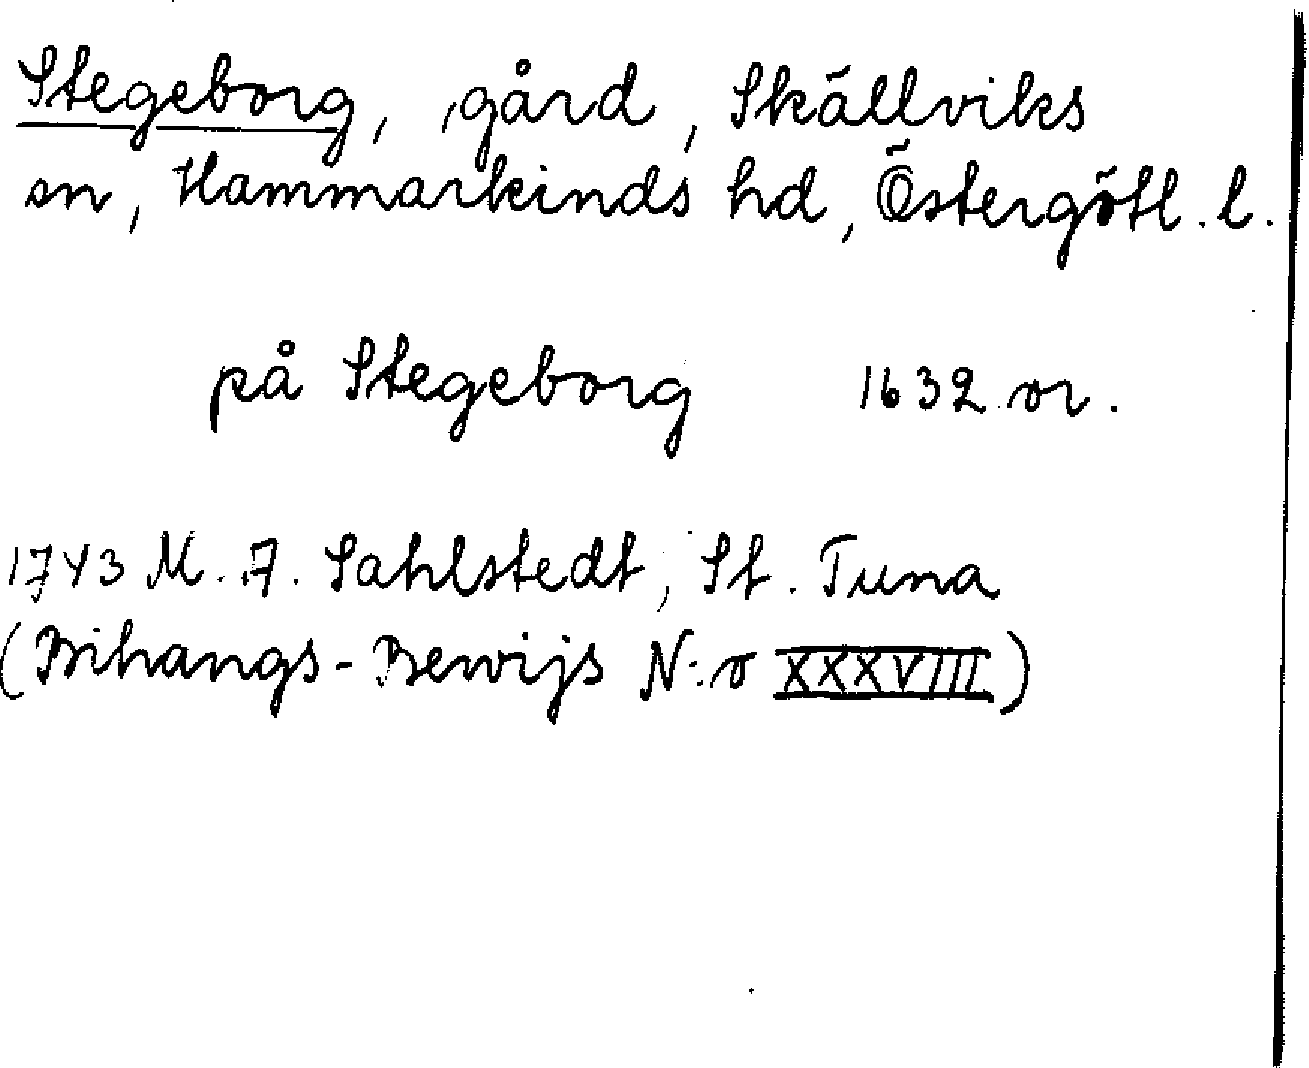 Stegeborg, gård, Skällviks
sn, Hammarkinds hd, Östergötl. l.
på Stegeborg 1632 or.
1743 M. A. Sahlstedt, St. Tuna
(Bihangs-Bewijs N:o XXXVIII)